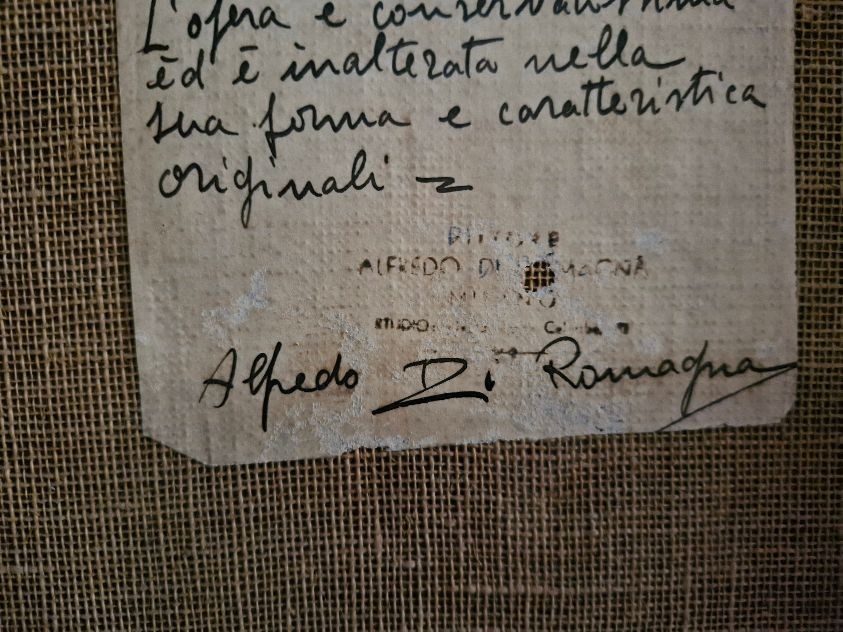 L'opera è conservatissima
ed è inalterata nella
sua forma e caratteristica
originali
PITTORE
ALFREDO DI ROMAGNA
MILANO
STUDIO
Alfredo Di Romagna